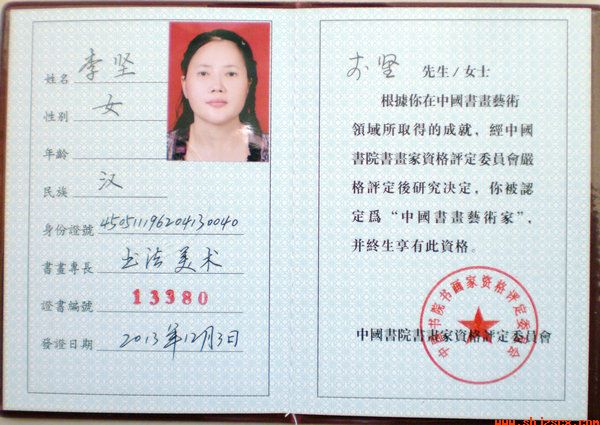 姓名 李坚
性别 女
年齡
民族 汉
身份證號 450511196204130040
書畫專長 书法美术
證書編號 13380
發證日期 2013年12月3日
李坚 先生/女士
根據你在中國書畫藝術
領域所取得的成就，經中國
書院書畫家資格評定委員會嚴
格評定後研究决定，你被認
定爲“中國書畫藝術家”，
并終生享有此資格。
中国书院书画家资格评定委员会
中國書院書畫家資格評定委員會